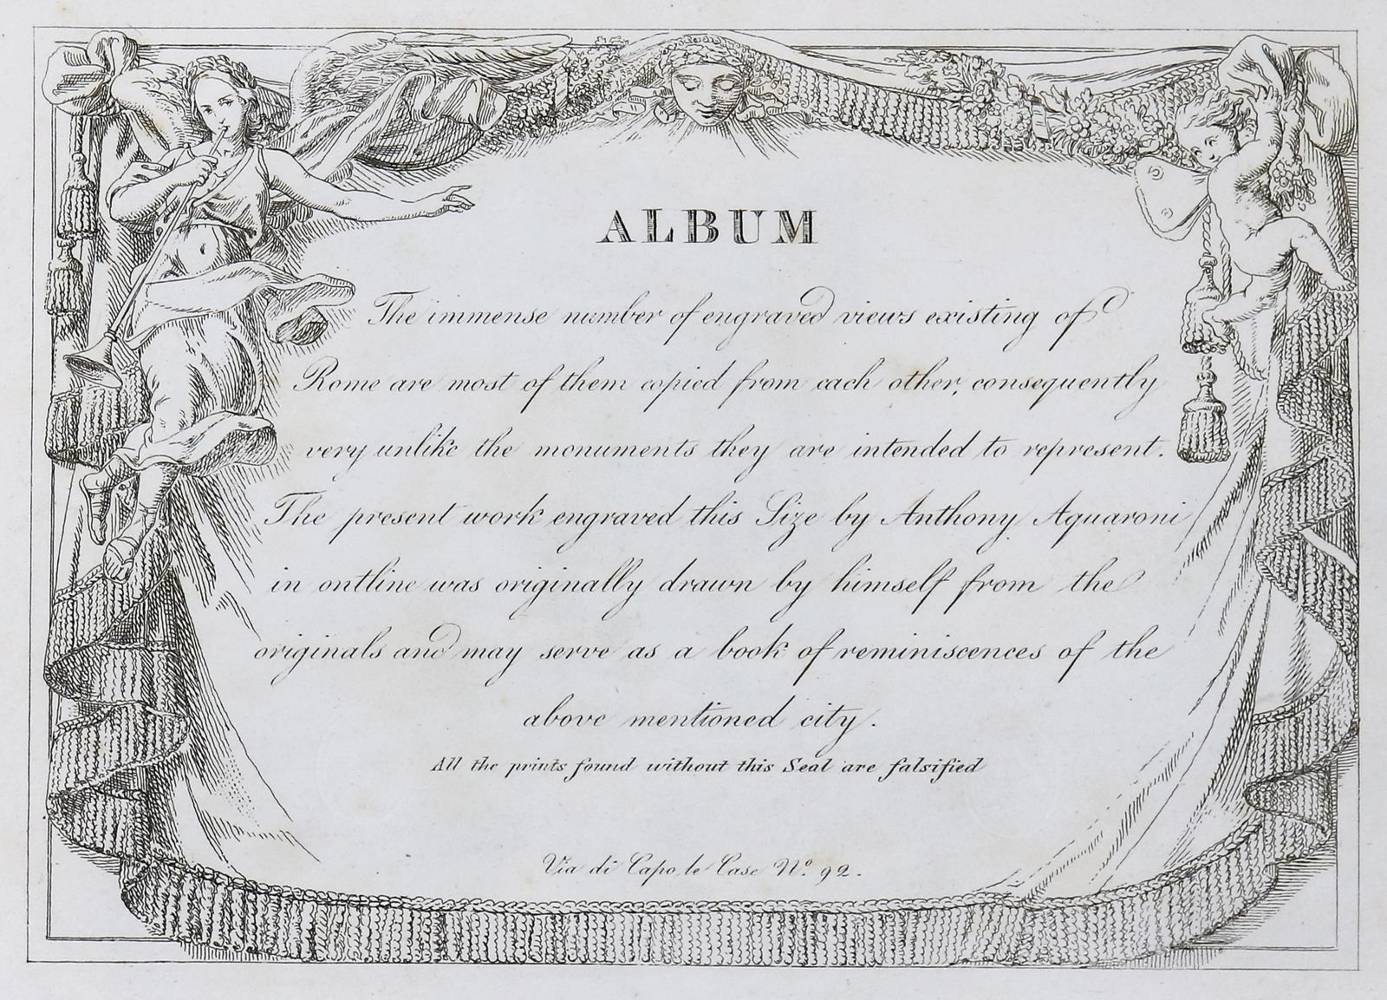 ALBUM
The immense number of engraved views existing of
Rome are most of them copied from each other, consequently
very unlike the monuments they are intended to represent.
The present work engraved this Size by Anthony Aquaroni
in ontline was originally drawn by himself from the
originals and may serve as a book of reminiscences of the
above mentioned city.
All the prints found without this Seal are falsified
Via di Capo le Case Nº. 92.